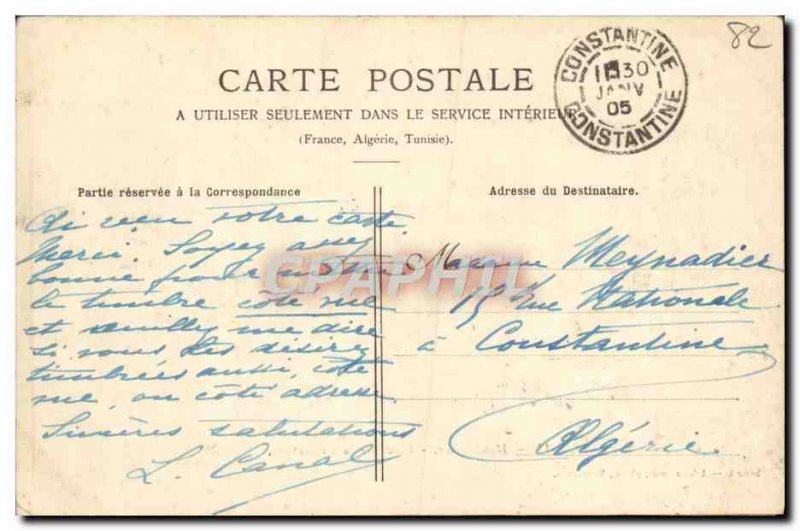 82
CONSTANTINE
1 30
JANV
05
CONSTANTINE
CARTE POSTALE
A UTILISER SEULEMENT DANS LE SERVICE INTÉRIEUR
(France, Algérie, Tunisie).
Partie réservée à la Correspondance
Adresse du Destinataire.
Ai reçu votre carte
Merci. Soyez assez
bonne pour mettre
le timbre côté vue
et veuillez me dire
si vous les désirez
timbrées aussi, côté
vue, ou côté adresse
Sincères salutations
L. Canal
Madame Meynadier
15 rue Nationale
à Constantine
Algérie
CPAPHIL